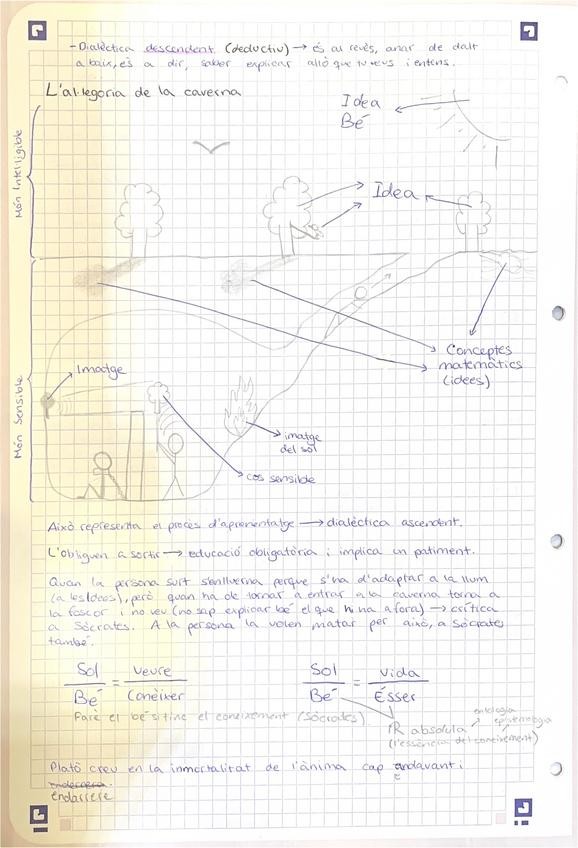 - Dialèctica descendent (deductiu) → és al revés, anar de dalt
a baix, és a dir, saber explicar allò que tu veus i entens.
L'al·legoria de la caverna
Idea
Bé
Món Intel·ligible
Idea
Conceptes
matemàtics
(idees)
Imatge
Món Sensible
imatge
del sol
cos sensible
Això representa el procés d'aprenentatge → dialèctica ascendent.
L'obliguen a sortir → educació obligatòria i implica un patiment.
Quan la persona surt s'enlluerna perque s'ha d'adaptar a la llum
(a les Idees), però quan ha de tornar a entrar a la caverna torna a
la foscor i no veu (no sap explicar bé el que hi ha a fora) → crítica
a Sócrates. A la persona la volen matar per això, a Sócrates
també.
Sol = veure
Bé Conèixer
Sol = vida
Bé Ésser
Faré el bé si tinc el coneixement (Sócrates)
R absoluta
ontologia
epistemologia
(l'essència del coneixement)
Plató creu en la inmortalitat de l'ànima cap endavant i
endarrere